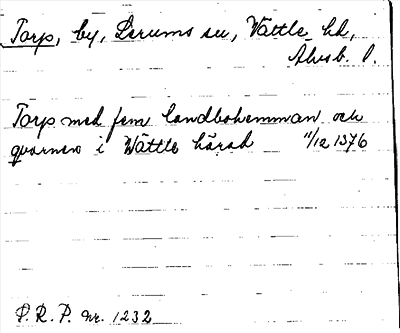 Torp, by, Lerums sn, Vättle hd,
Älvsb. l.
Torp med fem landbohemman och
qvarnen i Wättle härad 11/12 1376
P.R.P. nr. 1232